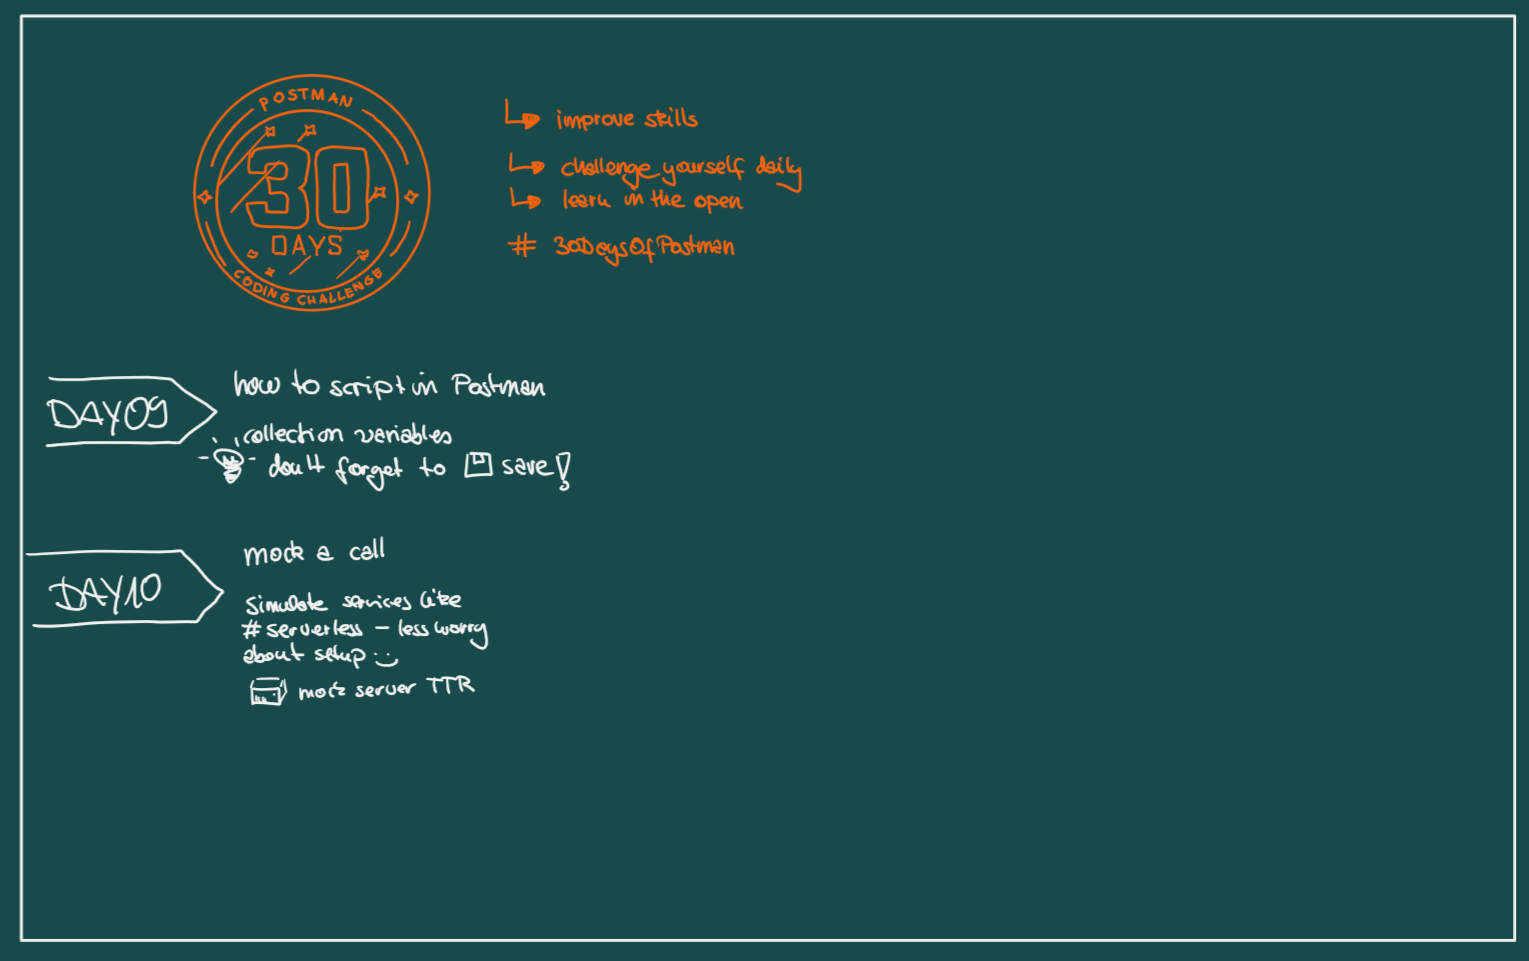 POSTMAN
30
DAYS
CODING CHALLENGE
improve skills
challenge yourself daily
learn in the open
# 30DaysOfPostman
DAY09
how to script in Postman
collection variables
don't forget to save!
DAY10
mock a call
simulate services like
# serverless - less worry
about setup :)
mock server TTR